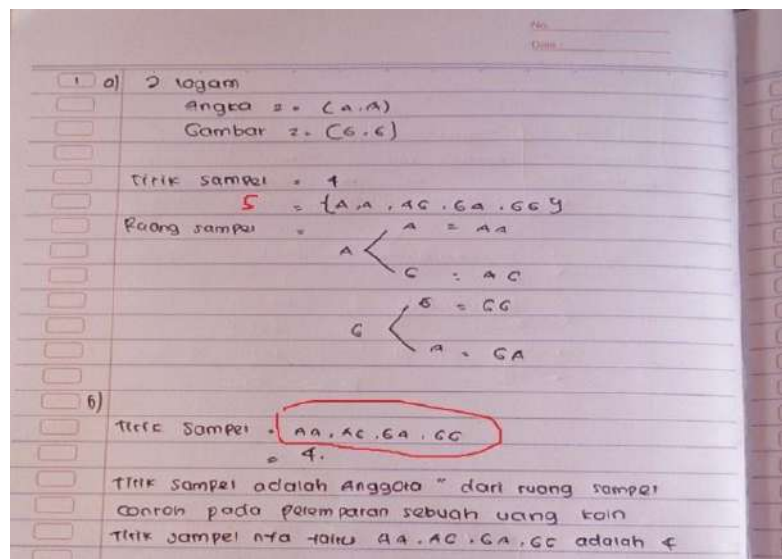 No.
Date :
1 a) 2 logam
Angka 2 = (A.A)
Gambar 2 = (G.G)
Titik sampel = 4
S = {A,A, AG, GA, GG}
Ruang sampel =
A A = AA
G = AG
G G = GG
A = GA
b)
Titik Sampel = AA, AG, GA, GG
= 4.
Titik sampel adalah Anggota " dari ruang sampel
conroh pada pelemparan sebuah uang koin
Titik sampel nya yaitu AA, AG, GA, GG adalah 4